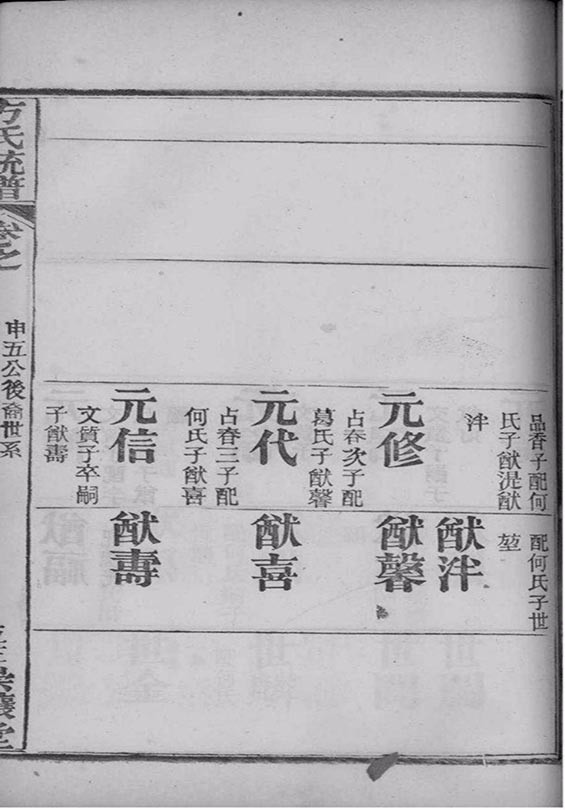 品香子配何
氏子猷湜猷
泮
元修
占春次子配
葛氏子猷馨
元代
占春三子配
何氏子猷喜
元信
文質子卒嗣
子猷壽
配何氏子世
堃
猷泮
猷馨
猷喜
猷壽
方氏統譜
卷之
申五公後裔世系